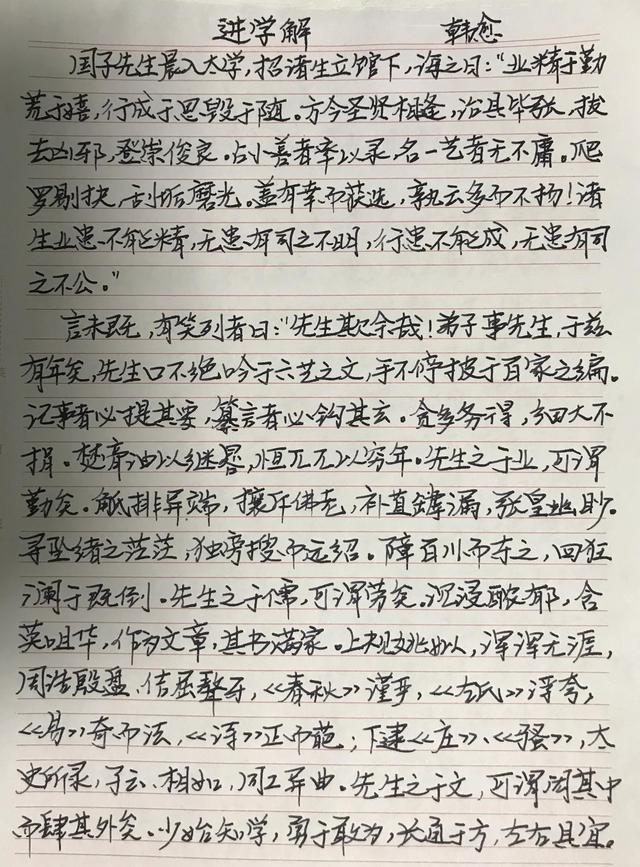 进学解 韩愈
国子先生晨入太学，招诸生立馆下，诲之曰：“业精于勤
荒于嬉，行成于思毁于随。方今圣贤相逢，治具毕张，拔
去凶邪，登崇俊良。占小善者率以录，名一艺者无不庸。爬
罗剔抉，刮垢磨光。盖有幸而获选，孰云多而不扬！诸
生业患不能精，无患有司之不明，行患不能成，无患有司
之不公。”
言未既，有笑列者曰：“先生欺余哉！弟子事先生，于兹
有年矣，先生口不绝吟于六艺之文，手不停披于百家之编。
记事者必提其要，纂言者必钩其玄。贪多务得，细大不
捐。焚膏油以继晷，恒兀兀以穷年。先生之于业，可谓
勤矣。觝排异端，攘斥佛老，补苴罅漏，张皇幽眇。
寻坠绪之茫茫，独旁搜而远绍。障百川而东之，回狂
澜于既倒。先生之于儒，可谓劳矣。沉浸醲郁，含
英咀华，作为文章，其书满家。上规姚姒，浑浑无涯，
周诰殷盘，佶屈聱牙，《春秋》谨严，《左氏》浮夸，
《易》奇而法，《诗》正而葩；下逮《庄》、《骚》，太
史所录，子云、相如，同工异曲。先生之于文，可谓闳其中
而肆其外矣。少始知学，勇于敢为，长通于方，左右具宜。